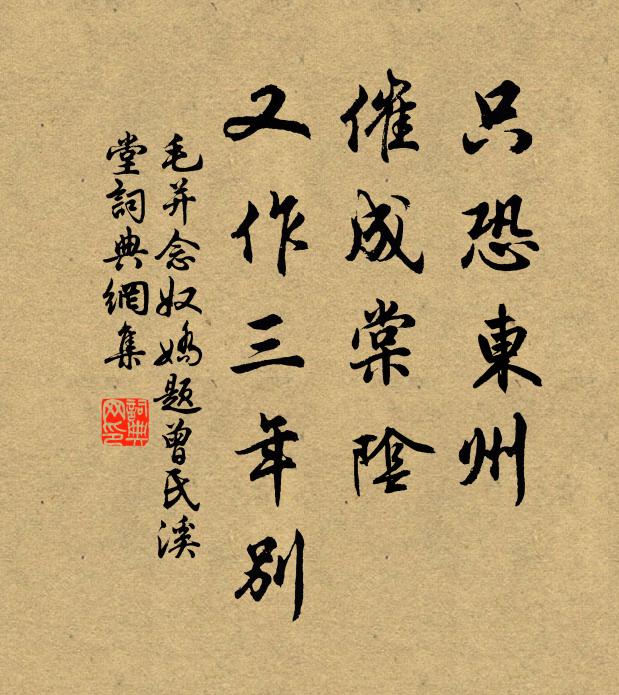 只恐東州
催成棠陰
又作三年別
毛并念奴嬌題曾氏溪
堂詞典網集
詞典
网印